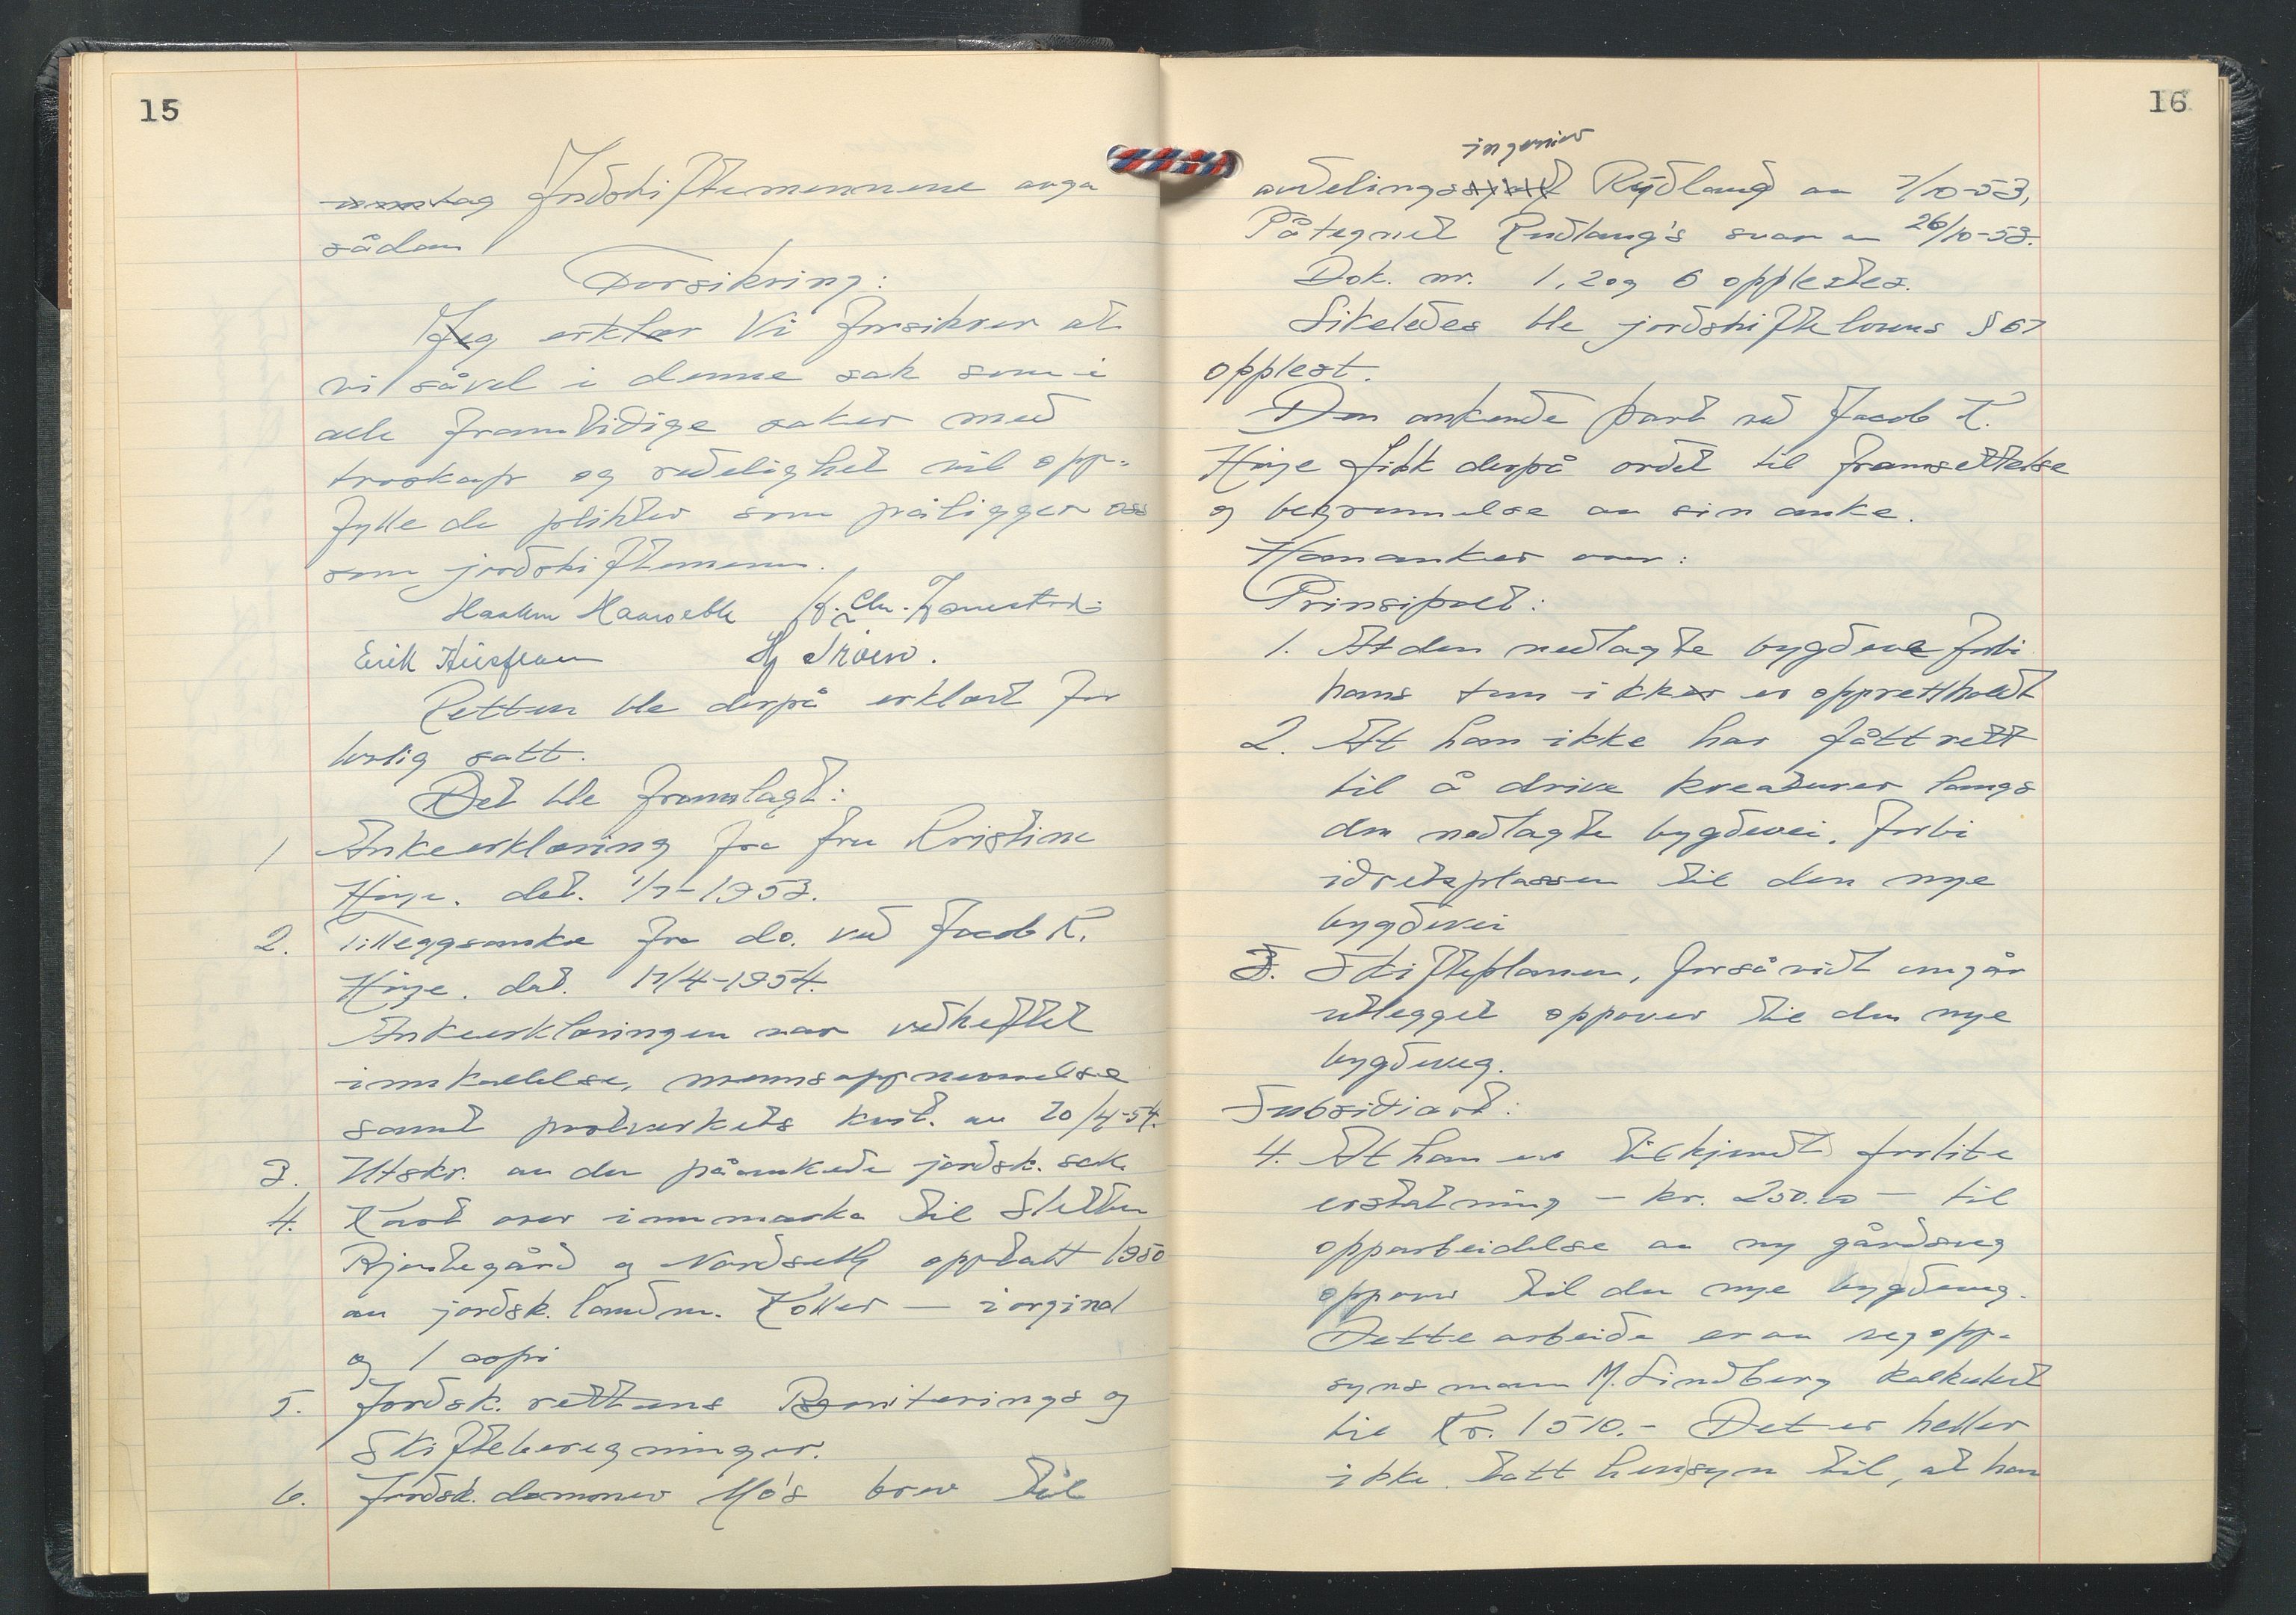 15
Jordskiftemennene avga
sådan
Forsikring:
Jeg erklær Vi forsikrer at
vi såvel i denne sak som i
alle framtidige saker med
troskap og redelighet vil opp-
fylle de plikter som påligger oss
som jordskiftemenn.
Haakon
Erik
Retten ble derpå erklært for
lovlig satt.
Det ble framlagt:
1 Ankeerklæring fra fru Kristine
Høye. dat. 1/7-1953.
2. Tilleggsanke fra do. ved Jacob K.
Høye. dat. 17/4-1954.
Ankeerklæringen var vedheftet
innkallelse, mannsoppnevnelse
samt postverkets kvit. av 20/4-54.
3. Utskr. av den påankede jordsk. sak
4. Kart over innmarka til Sletten
Bjerkegård og Nordseth opptatt 1950
av jordsk. landm. Koller — i orginal
og 1 copi
5. Jordsk. rettens Boniterings og
Skifteberegninger.
6. Jordsk. dommer Mo's brev til
16
ingeniør
avdelings Rydland av 7/10-53,
Påtegnet Rudlang's svar av 26/10-53.
Dok. nr. 1, 2 og 6 opplestes.
Likeledes ble jordskiftelovens § 67
opplest.
Den ankende part ved Jacob K.
Høye fikk derpå ordet til framsettelse
og begrunnelse av sin anke.
Han anker over:
Prinsipalt:
1. At den nedlagte bygdeveg forbi
hans tun ikke er opprettholdt
2. At han ikke har fått rett
til å drive kreaturer langs
den nedlagte bygdevei, forbi
idretsplassen til den nye
bygdevei
3. Skifteplanen, forsåvidt angår
utlegget oppover til den nye
bygdeveg.
Subsidiært:
4. At han er tilkjendt forlite
erstatning – kr. 250.00 – til
opparbeidelse av ny gårdsveg
oppover til den nye bygdeveg.
Dette arbeide er av vegopp-
synsmann M. Lindberg kalkulert
til Kr. 1510.- Det er heller
ikke tatt hensyn til, at han